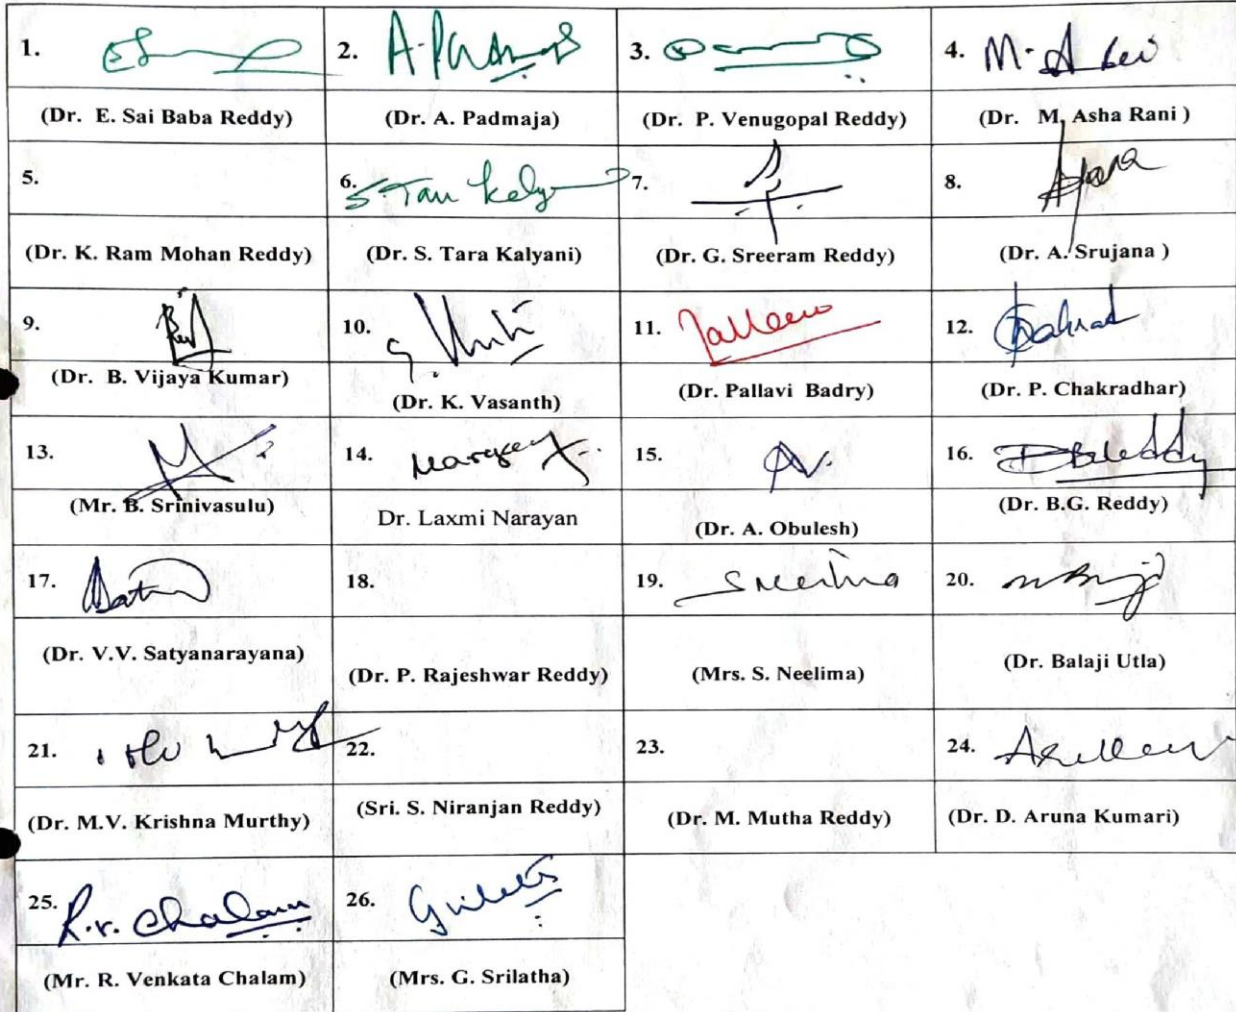 1. 2. A. Padmaja 3. 4. M. A
(Dr. E. Sai Baba Reddy) (Dr. A. Padmaja) (Dr. P. Venugopal Reddy) (Dr. M. Asha Rani )
5. 6. S. Tara Kaly 7. 8.
(Dr. K. Ram Mohan Reddy) (Dr. S. Tara Kalyani) (Dr. G. Sreeram Reddy) (Dr. A. Srujana )
9. 10. 11. 12.
(Dr. B. Vijaya Kumar) (Dr. K. Vasanth) (Dr. Pallavi Badry) (Dr. P. Chakradhar)
13. 14. 15. 16. Reddy
(Mr. B. Srinivasulu) Dr. Laxmi Narayan (Dr. A. Obulesh) (Dr. B.G. Reddy)
17. 18. 19. 20.
(Dr. V.V. Satyanarayana) (Dr. P. Rajeshwar Reddy) (Mrs. S. Neelima) (Dr. Balaji Utla)
21. 22. 23. 24.
(Dr. M.V. Krishna Murthy) (Sri. S. Niranjan Reddy) (Dr. M. Mutha Reddy) (Dr. D. Aruna Kumari)
25. R.V. Chalam 26.
(Mr. R. Venkata Chalam) (Mrs. G. Srilatha)